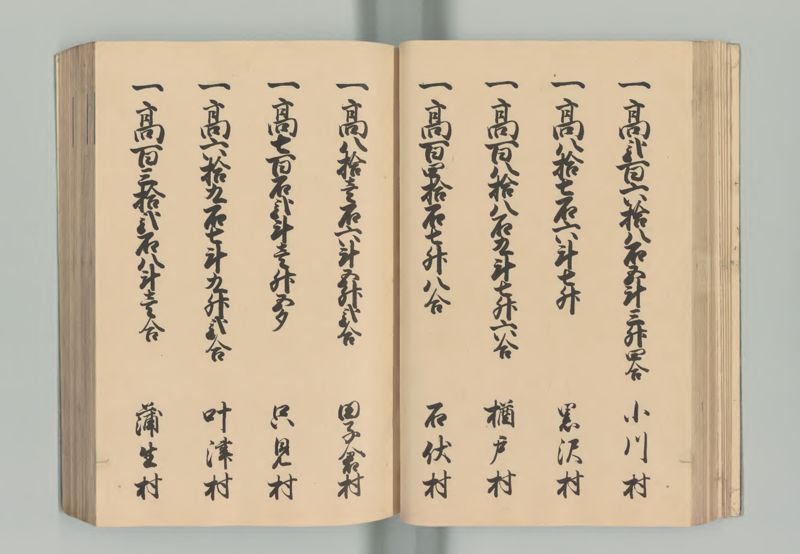 一高弐百六拾八石五斗三升四合 小川村
一高八拾七石六斗七升 黒沢村
一高百八拾八石九斗七升六合 楢戸村
一高百四拾石七升八合 石伏村
一高八拾壱石六斗五升弐合 田子倉村
一高七百石弐斗壱升五夕 只見村
一高六拾九石七斗九升弐合 叶津村
一高百三拾弐石八斗壱合 蒲生村